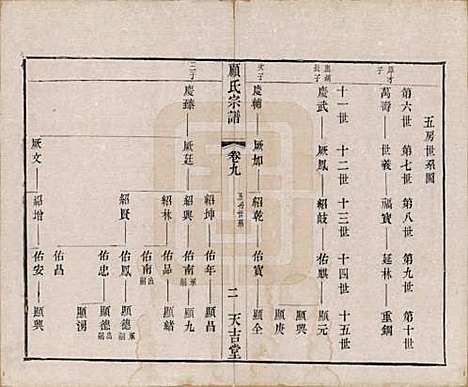 五房世系圖
第六世 第七世 第八世 第九世 第十世
萬壽 世義 福寶 延林 重鋼
十一世 十二世 十三世 十四世 十五世
長子
慶武 厥鳳 紹歧 佑麒 顯元
顯興
顯庚
次子
慶輔 厥如 紹乾 佑寶 顯全
顧氏宗譜
卷九
五房世系
二 天吉堂
三子
慶臻 厥廷 紹坤 佑年 顯昌
紹興 佑南嗣 顯九
紹林 佑品 顯緒
佑南出嗣
紹賢 佑鳳 顯德嗣
佑忠 顯德出嗣
顯湧
厥文 紹增 佑昌
佑安 顯興